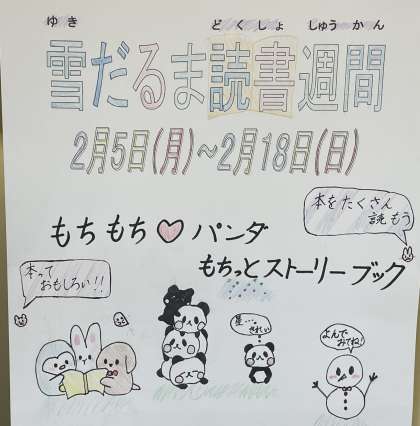 ゆき どくしょ しゅうかん
雪だるま読書週間
2月5日(月)～2月18日(日)
本をたくさん
読もう
もちもち♡パンダ
もちっとストーリーブック
本って
おもしろい!!
星…
きれい
よんで
みてね!